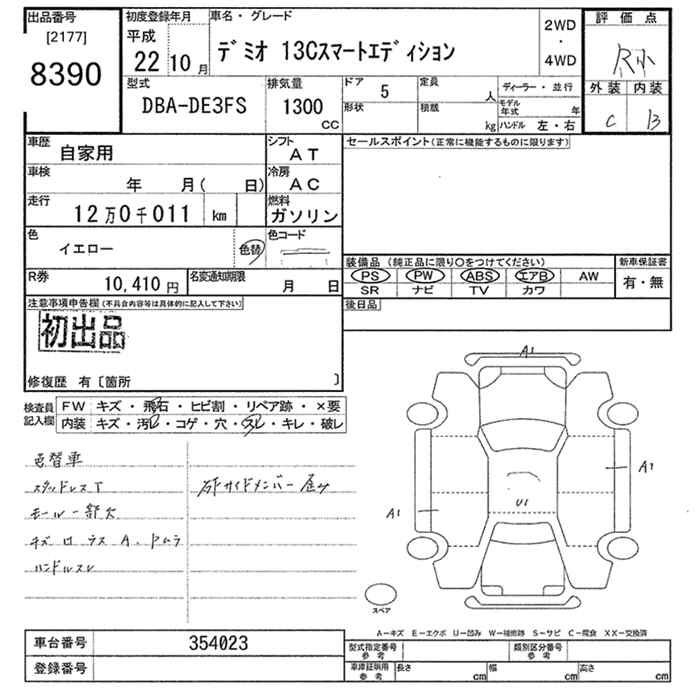 出品番号
[2177]
8390
初度登録年月
平成
22 10 月
車名・グレード
デミオ 13Cスマートエディション
2WD
・
4WD
評価点
外装 内装
C B
型式
DBA-DE3FS
排気量
1300
CC
ドア 5
形状
定員
人
積載
kg
ディーラー・並行
モデル年式 年
ハンドル 左・右
車歴
自家用
シフト
AT
セールスポイント(正常に機能するものに限ります)
車検
年 月( 日)
冷房
AC
走行
12万0千011 km
燃料
ガソリン
色
イエロー
色替
色コード
装備品 (純正品に限り○をつけてください)
新車保証書
PS PW ABS エアB AW
有・無
SR ナビ TV カワ
R券
10,410 円
名変通知期限
月 日
後日品
注意事項申告欄(不具合内容等は具体的に記入して下さい)
初出品
修復歴 有〔箇所 〕
検査員記入欄
FW キズ・飛石・ヒビ割・リペア跡・×要
内装 キズ・汚レ・コゲ・穴・スレ・キレ・破レ
色替車
スタッドレスT
モール一部欠
キズ
ハンドルスレ
サイドメンバー
A1
A1
A1
U1
スペア
A－キズ E－エクボ U－凹み W－補修跡 S－サビ C－腐食 XX－交換済
車台番号
354023
登録番号
型式指定番号
参考
類別区分番号
参考
車庫証明用
参考
長さ cm
幅 cm
高さ cm